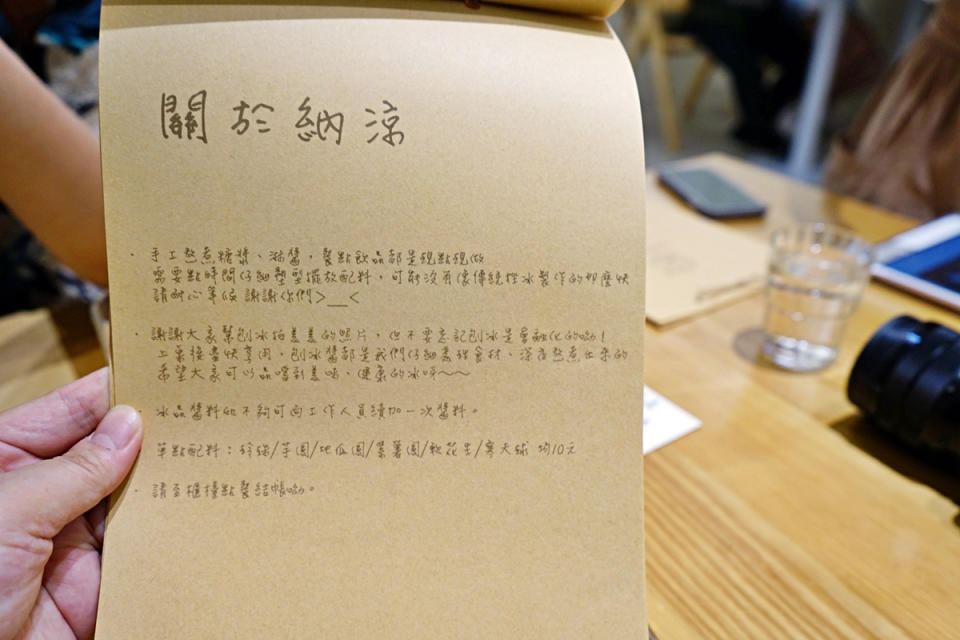 關於納涼
· 手工熬煮糖漿、淋醬，餐點飲品都是現點現做
需要點時間仔細塑型擺放配料，可能沒有像傳統性冰製作的那麼快
請耐心等候 謝謝你們>__<
· 謝謝大家幫刨冰拍美美的照片，但不要忘記刨冰是會融化的呦！
上桌後盡快享用，刨冰醬都是我們仔細處理食材、深夜熬煮出來的
希望大家可以品嚐到美味、健康的冰呀~~
· 冰品醬料如不夠可向工作人員續加一次醬料。
單點配料：珍珠/芋圓/地瓜圓/紫薯圓/軟花生/寒天球 均10元
· 請至櫃檯點餐結帳呦。